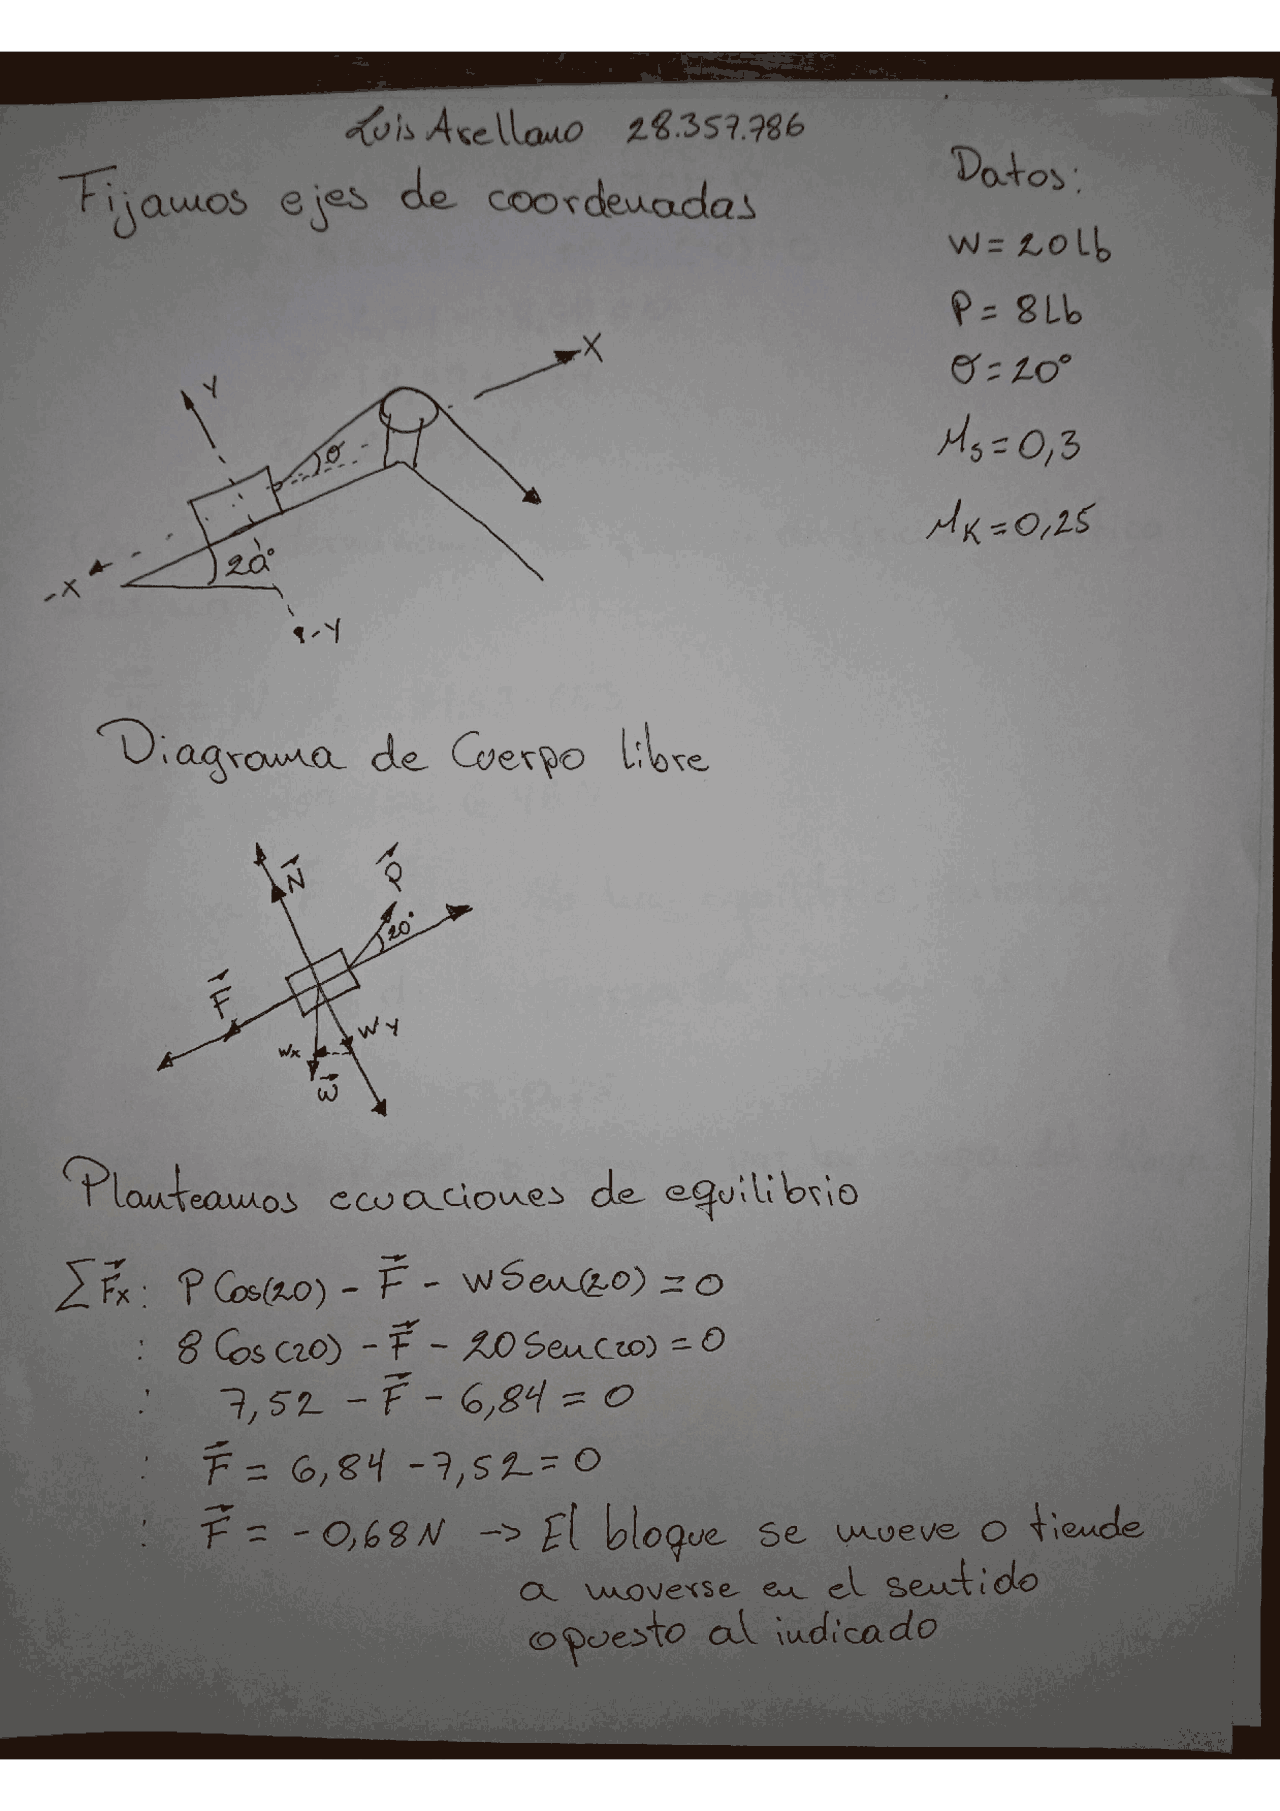 Luis Arellano 28.357.786
Fijamos ejes de coordenadas
Datos:
W = 20 Lb
P = 8 Lb
θ = 20°
μs = 0,3
μK = 0,25
Y
X
θ
20°
-X
-Y
Diagrama de Cuerpo libre
N⃗
P⃗
20°
F⃗
Wx
WY
W⃗
Planteamos ecuaciones de equilibrio
∑F⃗x: P Cos(20) - F⃗ - W Sen(20) = 0
: 8 Cos(20) - F⃗ - 20 Sen(20) = 0
: 7,52 - F⃗ - 6,84 = 0
: F⃗ = 6,84 - 7,52 = 0
: F⃗ = - 0,68 N -> El bloque se mueve o tiende
a moverse en el sentido
opuesto al indicado